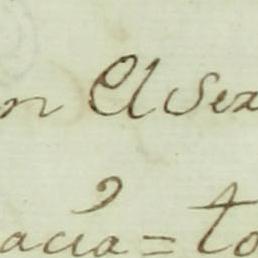 n El Sex
acia = to